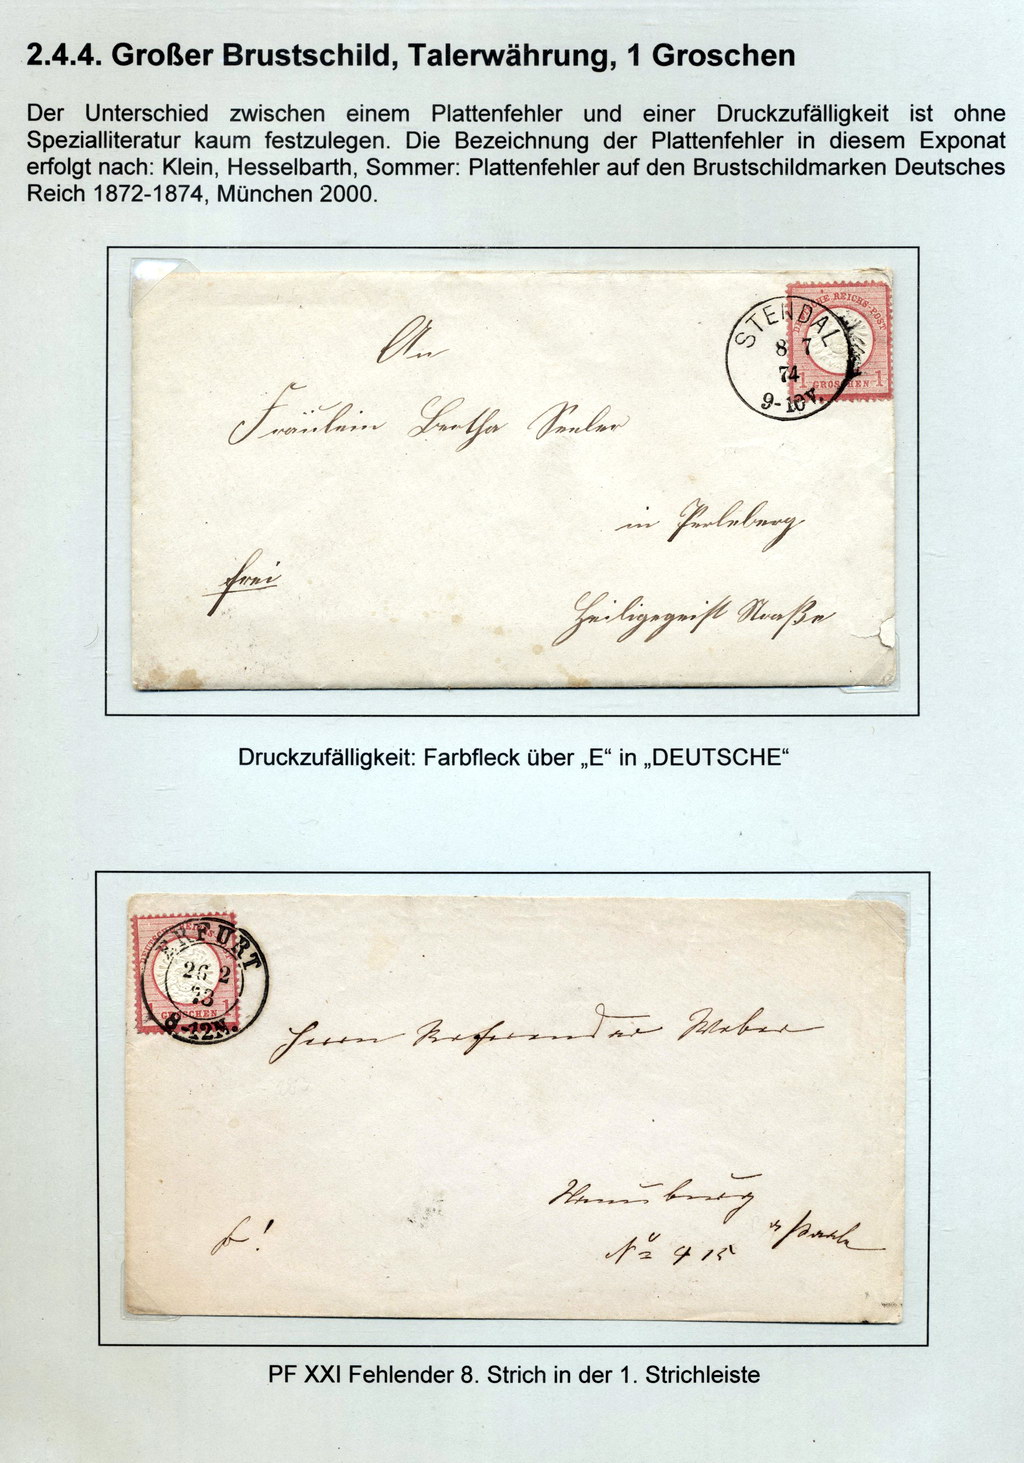 2.4.4. Großer Brustschild, Talerwährung, 1 Groschen
Der Unterschied zwischen einem Plattenfehler und einer Druckzufälligkeit ist ohne
Spezialliteratur kaum festzulegen. Die Bezeichnung der Plattenfehler in diesem Exponat
erfolgt nach: Klein, Hesselbarth, Sommer: Plattenfehler auf den Brustschildmarken Deutsches
Reich 1872-1874, München 2000.
REICHS-POST
1 GROSCHEN 1
STENDAL
8 7
74
9-10V.
An
Fräulein Bertha Seeler
in Perleberg
frei
Heiligegeist Straße
Druckzufälligkeit: Farbfleck über „E“ in „DEUTSCHE“
ERFURT
26 2
73
8-12N.
1 GROSCHEN 1
Herrn Referendar Weber
Naumburg
a/Saale
f!
No 415
PF XXI Fehlender 8. Strich in der 1. Strichleiste